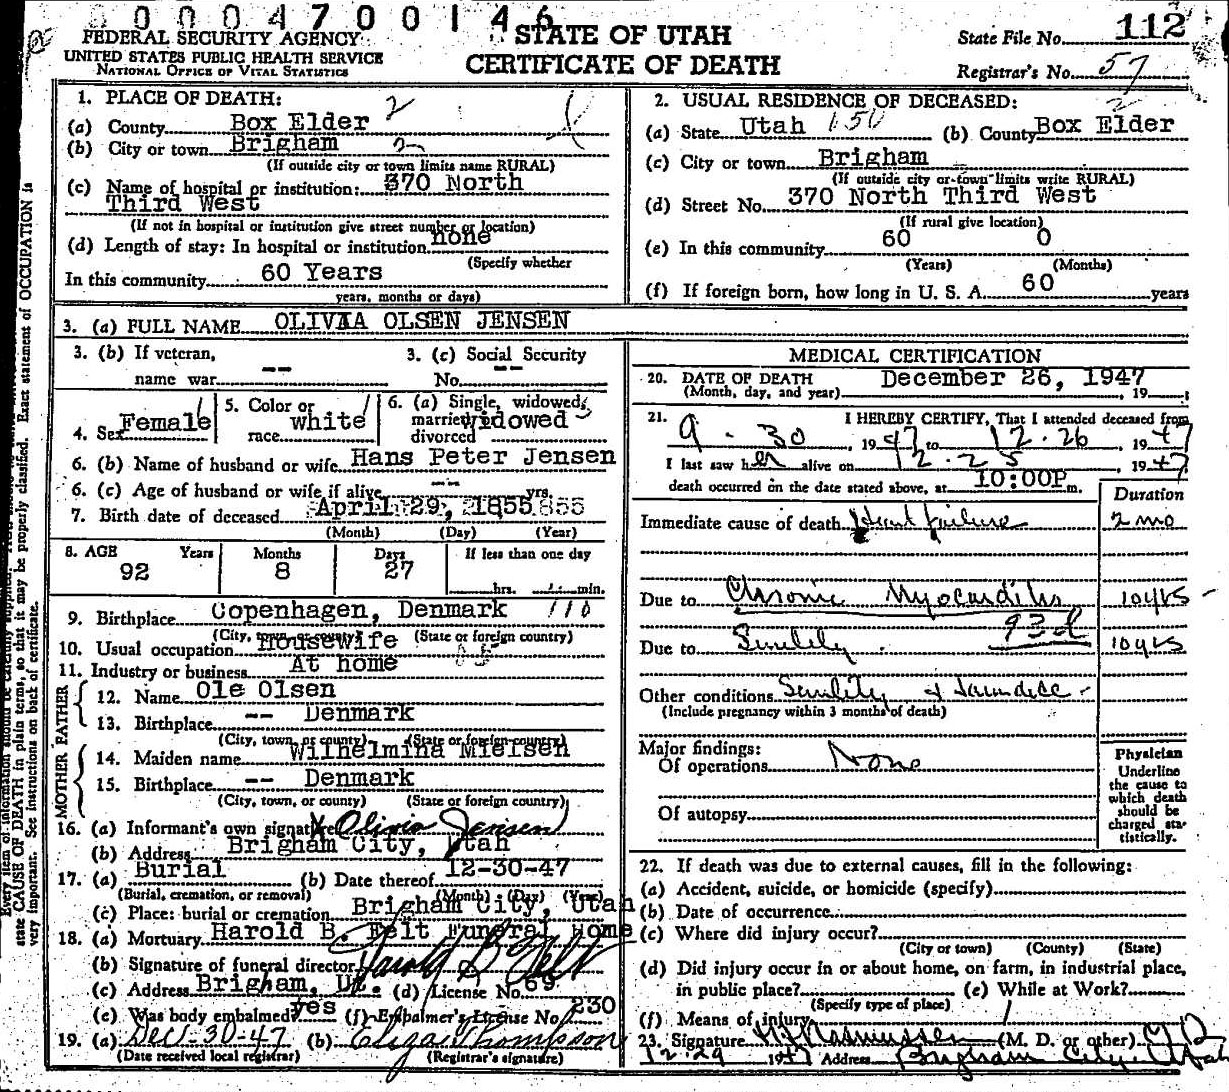 0000470014 6
FEDERAL SECURITY AGENCY
UNITED STATES PUBLIC HEALTH SERVICE
NATIONAL OFFICE OF VITAL STATISTICS
STATE OF UTAH
CERTIFICATE OF DEATH
State File No. 112
Registrar's No. 57
1. PLACE OF DEATH: 2
(a) County Box Elder
(b) City or town Brigham 2
(If outside city or town limits name RURAL)
(c) Name of hospital or institution: 370 North
Third West
(If not in hospital or institution give street number or location)
(d) Length of stay: In hospital or institution none
(Specify whether
In this community 60 Years
years, months or days)
2. USUAL RESIDENCE OF DECEASED:
(a) State Utah 150 (b) County Box Elder
(c) City or town Brigham
(If outside city or town limits write RURAL)
(d) Street No. 370 North Third West
(If rural give location)
(e) In this community 60 0
(Years) (Months)
(f) If foreign born, how long in U. S. A. 60 years
3. (a) FULL NAME OLIVIA OLSEN JENSEN
3. (b) If veteran,
name war --
3. (c) Social Security
No. --
4. Sex Female
5. Color or
race white
6. (a) Single, widowed,
married widowed
divorced
6. (b) Name of husband or wife Hans Peter Jensen
6. (c) Age of husband or wife if alive -- yrs.
7. Birth date of deceased April 29, 1855
(Month) (Day) (Year)
8. AGE Years Months Days If less than one day
92 8 27 hrs. min.
9. Birthplace Copenhagen, Denmark 110
(City, town, or county) (State or foreign country)
10. Usual occupation Housewife
11. Industry or business At home
FATHER
12. Name Ole Olsen
13. Birthplace -- Denmark
(City, town, or county) (State or foreign country)
MOTHER
14. Maiden name Wilhelmina Nielsen
15. Birthplace -- Denmark
(City, town, or county) (State or foreign country)
16. (a) Informant's own signature X Olivia Jensen
(b) Address Brigham City, Utah
17. (a) Burial (b) Date thereof 12-30-47
(Burial, cremation, or removal) (Month) (Day) (Year)
(c) Place: burial or cremation Brigham City, Utah
18. (a) Mortuary Harold B. Felt Funeral Home
(b) Signature of funeral director Harold B Felt
(c) Address Brigham, Ut. (d) License No. 69
(e) Was body embalmed? yes (f) Embalmer's License No. 230
19. (a) Dec-30-47 (b) Eliza Thompson
(Date received local registrar) (Registrar's signature)
MEDICAL CERTIFICATION
20. DATE OF DEATH December 26, 1947
(Month, day, and year) , 19
21. I HEREBY CERTIFY, That I attended deceased from
9 - 30 1947 to 12-26 1947
I last saw her alive on 12-25 1947
death occurred on the date stated above, at 10:00P m.
Duration
Immediate cause of death Heart failure 2 mo
Due to Chronic Myocarditis 10 yrs
93d
Due to Senility 10 yrs
Other conditions Senility & Jaundice
(Include pregnancy within 3 months of death)
Major findings:
Of operations None
Of autopsy
Physician
Underline
the cause to
which death
should be
charged sta-
tistically.
22. If death was due to external causes, fill in the following:
(a) Accident, suicide, or homicide (specify)
(b) Date of occurrence
(c) Where did injury occur?
(City or town) (County) (State)
(d) Did injury occur in or about home, on farm, in industrial place,
in public place? (e) While at Work?
(Specify type of place)
(f) Means of injury
23. Signature Rasmussen (M. D. or other) M D
12-29 1947 Address Brigham City, Utah
state CAUSE OF DEATH in plain terms, so that it may be properly classified. Exact statement of OCCUPATION is
very important. See instructions on back of certificate.